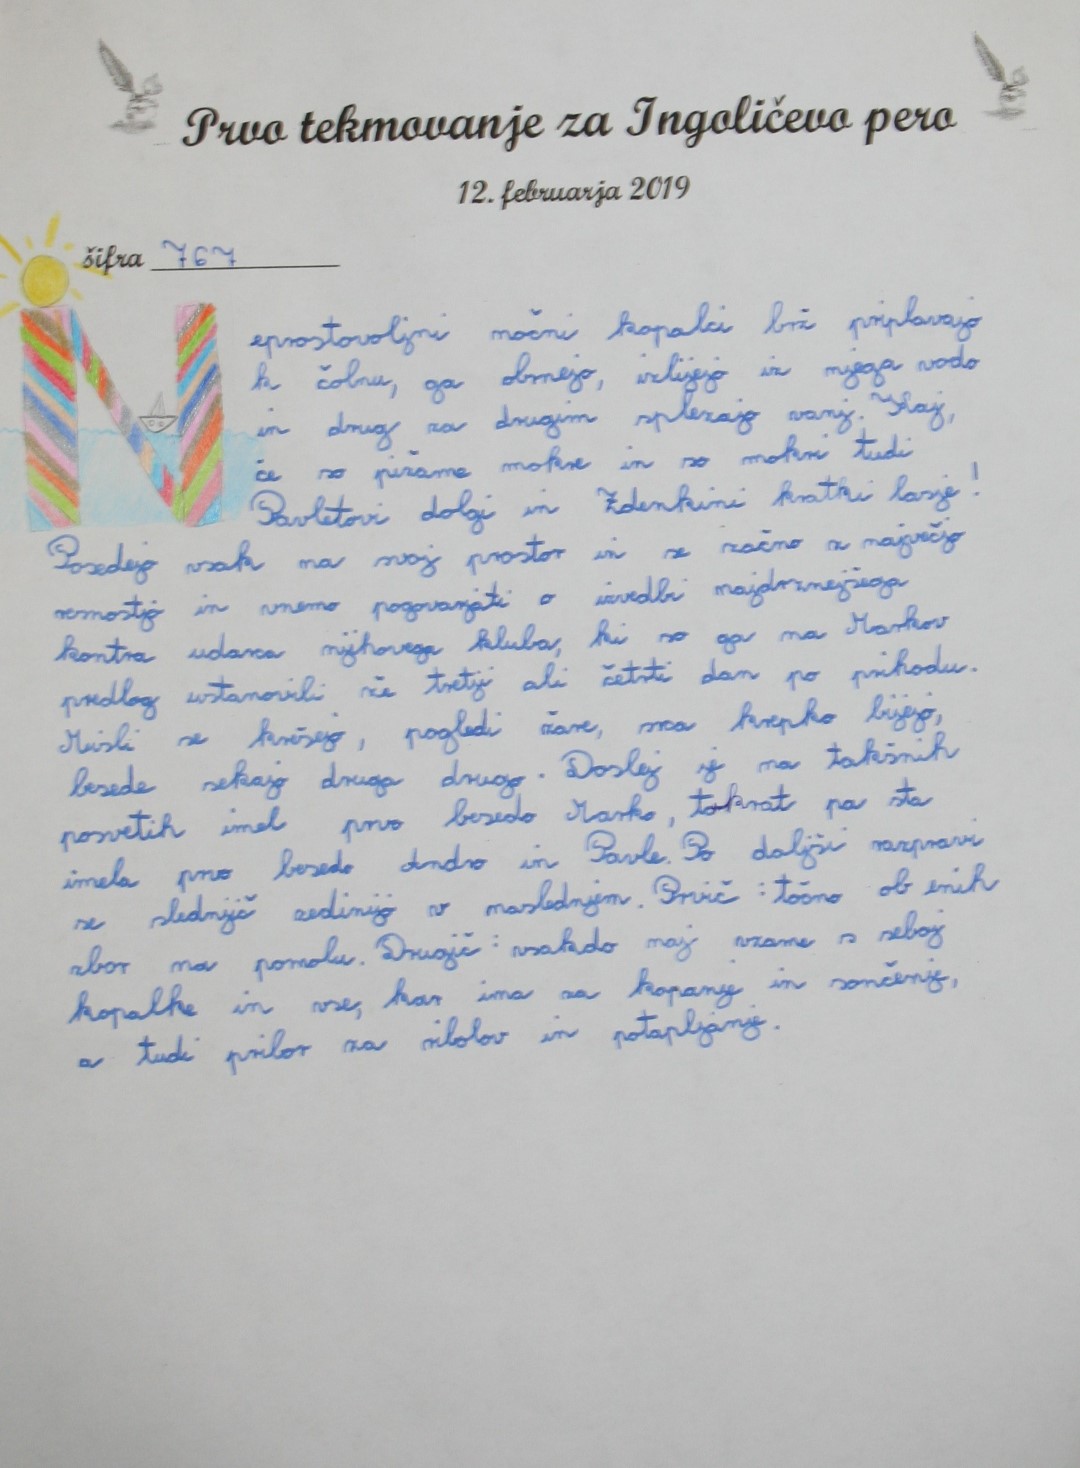 Prvo tekmovanje za Ingoličevo pero
12. februarja 2019
šifra 767
Neprostovoljni nočni kopalci brž priplavajo
k čolnu, ga obrnejo, izlijejo iz njega vodo
in drug za drugim splezajo vanj. Kaj,
če so pižame mokre in so mokri tudi
Pavletovi dolgi in Zdenkini kratki lasje!
Posedejo vsak na svoj prostor in se začno z največjo
resnostjo in vnemo pogovarjati o izvedbi najdrznejšega
kontra udarca njihovega kluba, ki so ga na Markov
predlog ustanovili že tretji ali četrti dan po prihodu.
Misli se krešejo, pogledi žare, srca krepko bijejo,
besede sekajo druga drugo. Doslej je na takšnih
posvetih imel prvo besedo Marko, tokrat pa sta
imela prvo besedo Andro in Pavle. Po daljši razpravi
se slednjič zedinijo v naslednjem. Prvič: točno ob enih
zbor na pomolu. Drugič: vsakdo naj vzame s seboj
kopalke in vse, kar ima za kopanje in sončenje,
a tudi pribor za ribolov in potapljanje.